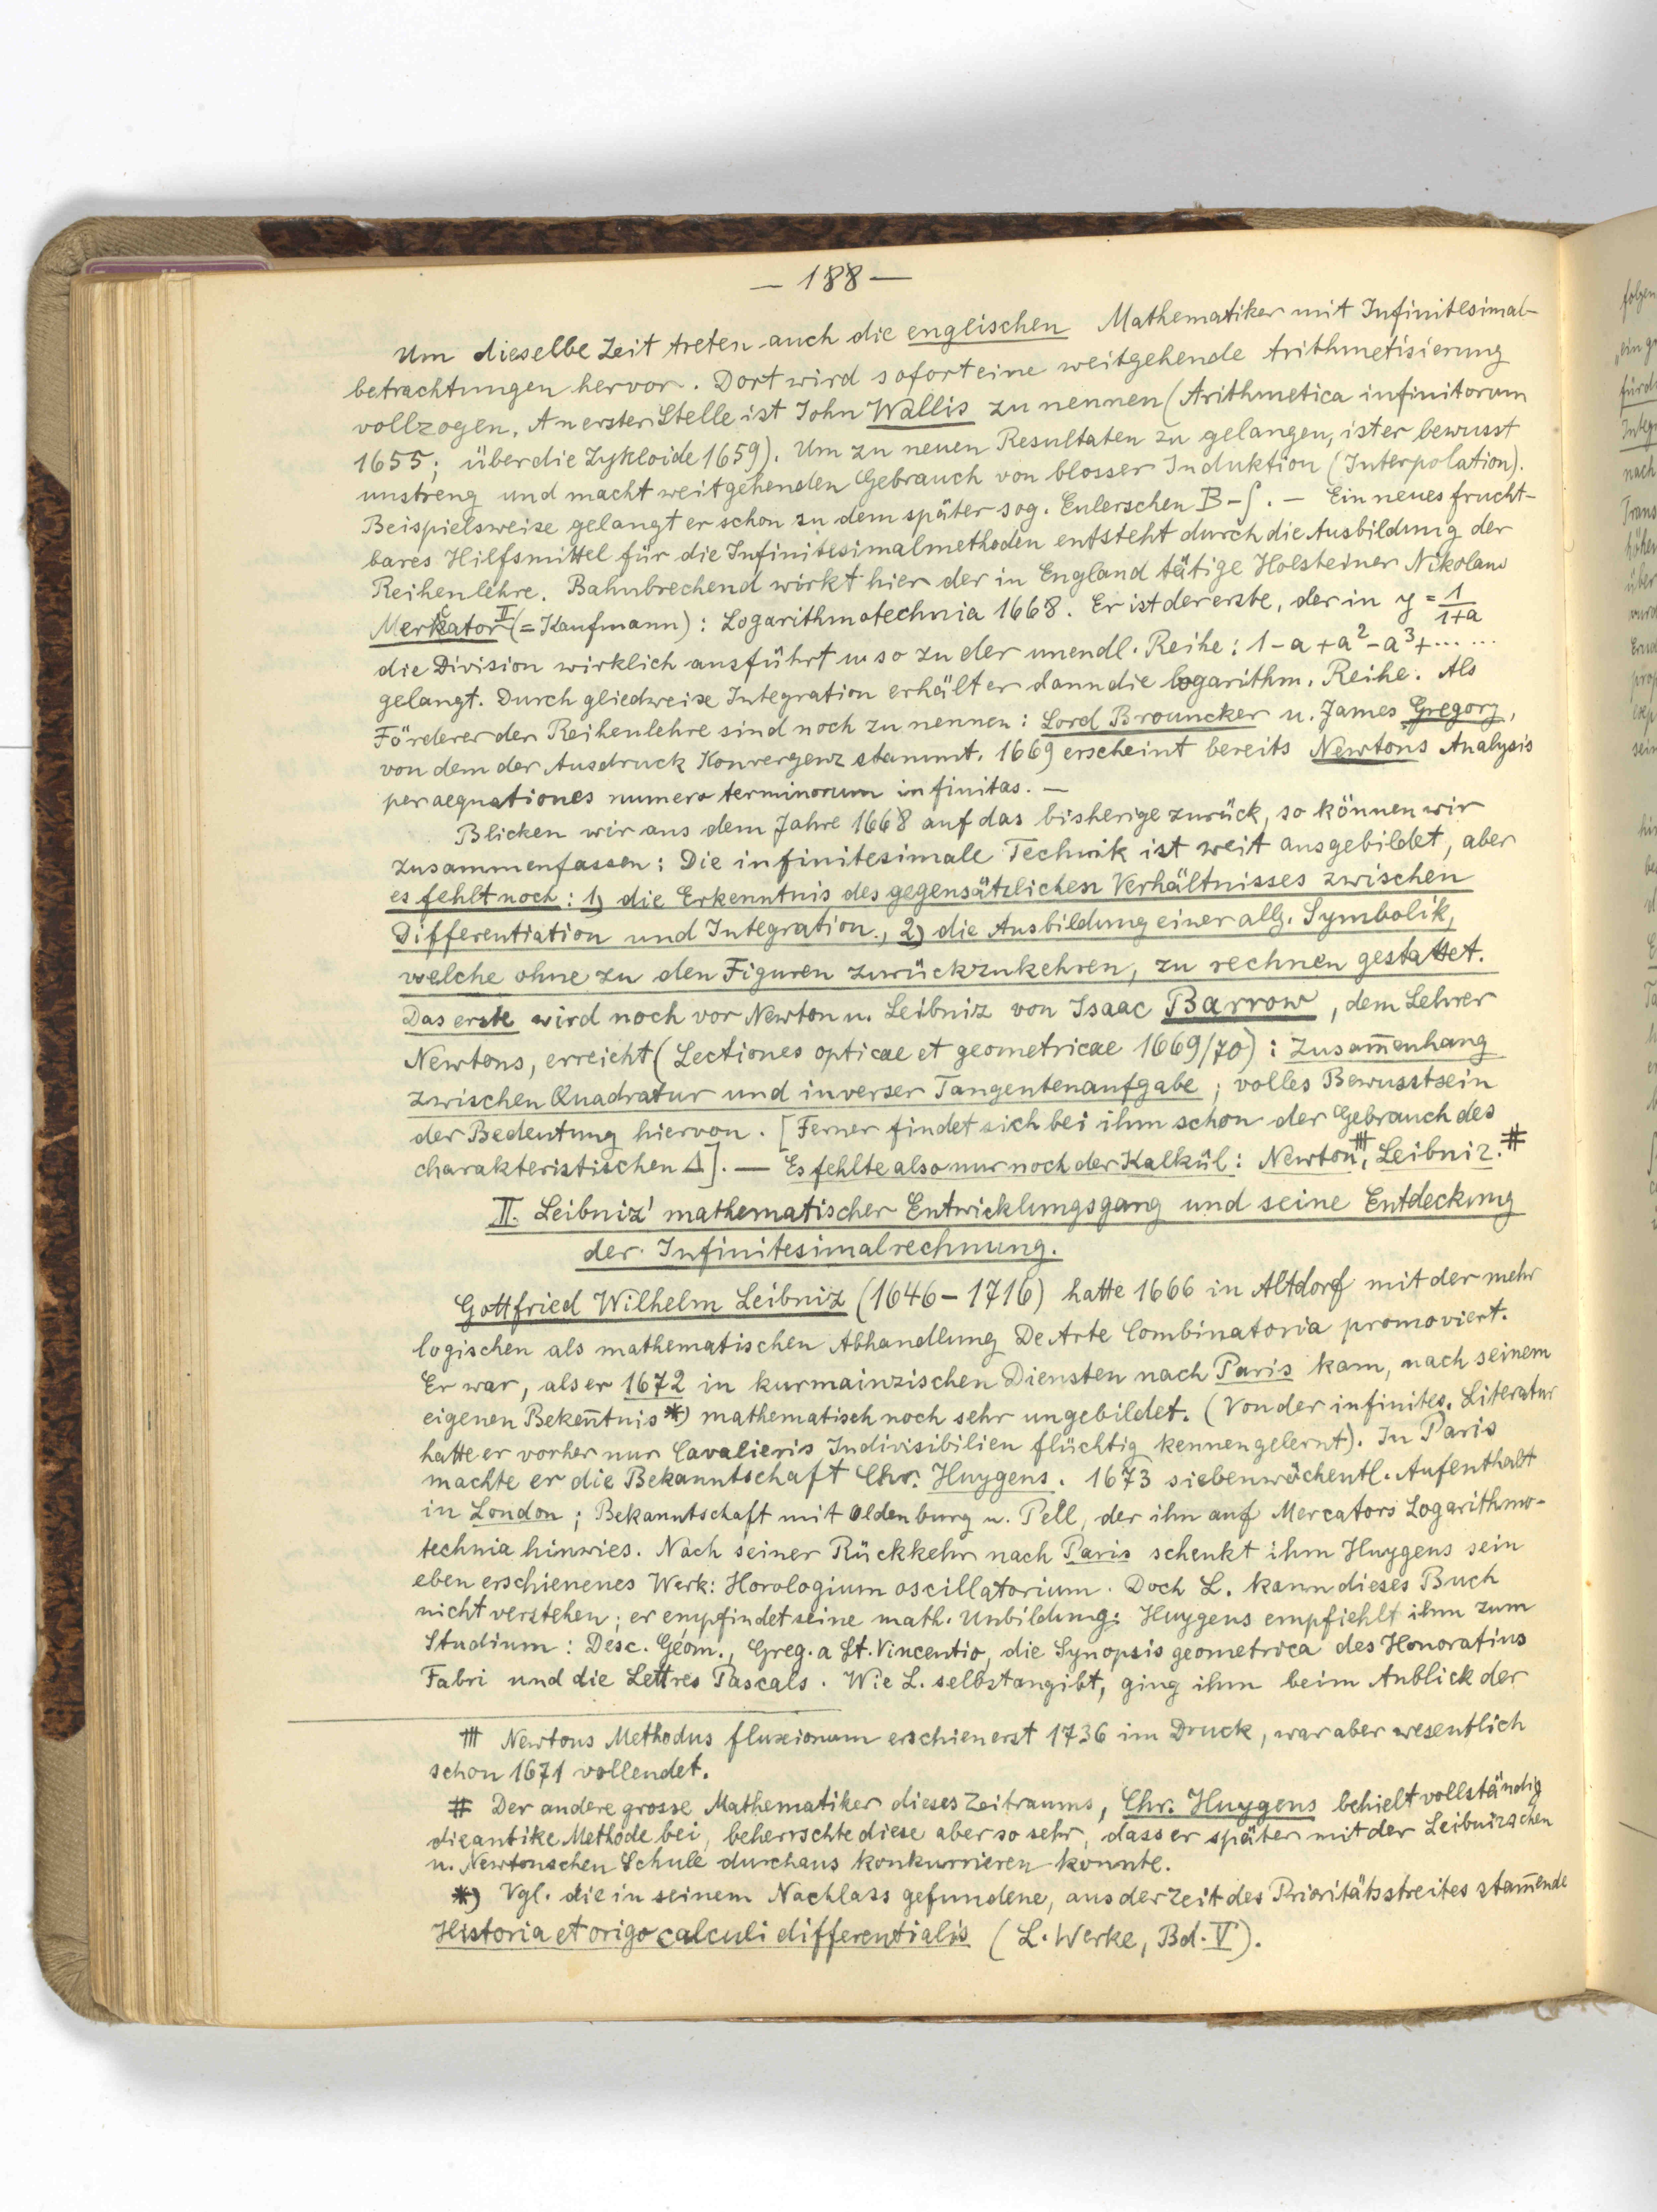 — 188 —
Um dieselbe Zeit treten auch die englischen Mathematiker mit Infinitesimal-
betrachtungen hervor. Dort wird sofort eine weitgehende Arithmetisierung
vollzogen. An erster Stelle ist John Wallis zu nennen (Arithmetica infinitorum
1655; über die Zykloide 1659). Um zu neuen Resultaten zu gelangen, ist er bewusst
unstreng und macht weitgehenden Gebrauch von blosser Induktion (Interpolation).
Beispielsweise gelangt er schon zu dem später sog. Eulerschen B-∫. — Ein neues frucht-
bares Hilfsmittel für die Infinitesimalmethoden entsteht durch die Ausbildung der
Reihenlehre. Bahnbrechend wirkt hier der in England tätige Holsteiner Nikolaus
Merkator II (= Kaufmann): Logarithmotechnia 1668. Er ist der erste, der in y = 1/1+a
die Division wirklich ausführt u. so zu der unendl. Reihe: 1 - a + a² - a³ + ... ...
gelangt. Durch gliedweise Integration erhält er dann die logarithm. Reihe. Als
Förderer der Reihenlehre sind noch zu nennen: Lord Brouncker u. James Gregory,
von dem der Ausdruck Konvergenz stammt. 1669 erscheint bereits Newtons Analysis
per aequationes numero terminorum infinitas. —
Blicken wir aus dem Jahre 1668 auf das bisherige zurück, so können wir
zusammenfassen: Die infinitesimale Technik ist weit ausgebildet, aber
es fehlt noch: 1) die Erkenntnis des gegensätzlichen Verhältnisses zwischen
Differentiation und Integration., 2) die Ausbildung einer allg. Symbolik,
welche ohne zu den Figuren zurückzukehren, zu rechnen gestattet.
Das erste wird noch vor Newton u. Leibniz von Isaac Barrow, dem Lehrer
Newtons, erreicht (Lectiones opticae et geometricae 1669/70): Zusam̅enhang
zwischen Quadratur und inverser Tangentenaufgabe; volles Bewusstsein
der Bedeutung hiervon. [Ferner findet sich bei ihm schon der Gebrauch des
charakteristischen Δ]. — Es fehlte also nur noch der Kalkül: Newton ⧻, Leibniz. #
II. Leibniz' mathematischer Entwicklungsgang und seine Entdeckung
der Infinitesimalrechnung.
Gottfried Wilhelm Leibniz (1646-1716) hatte 1666 in Altdorf mit der mehr
logischen als mathematischen Abhandlung De Arte Combinatoria promoviert.
Er war, als er 1672 in kurmainzischen Diensten nach Paris kam, nach seinem
eigenen Beken̅tnis *) mathematisch noch sehr ungebildet. (Von der infinites. Literatur
hatte er vorher nur Cavalieris Indivisibilien flüchtig kennen gelernt). In Paris
machte er die Bekanntschaft Chr. Huygens. 1673 siebenwöchentl. Aufenthalt
in London; Bekanntschaft mit Oldenburg u. Pell, der ihn auf Mercators Logarithmo-
technia hinwies. Nach seiner Rückkehr nach Paris schenkt ihm Huygens sein
eben erschienenes Werk: Horologium oscillatorium. Doch L. kann dieses Buch
nicht verstehen; er empfindet seine math. Unbildung: Huygens empfiehlt ihm zum
Studium: Desc. Géom., Greg. a St. Vincentio, die Synopsis geometrica des Honoratius
Fabri und die Lettres Pascals. Wie L. selbst angibt, ging ihm beim Anblick der
⧻ Newtons Methodus fluxionum erschien erst 1736 im Druck, war aber wesentlich
schon 1671 vollendet.
# Der andere grosse Mathematiker dieses Zeitraums, Chr. Huygens behielt vollständig
die antike Methode bei, beherrschte diese aber so sehr, dass er später mit der Leibnizschen
u. Newtonschen Schule durchaus konkurrieren konnte.
*) Vgl. die in seinem Nachlass gefundene, aus der Zeit des Prioritätsstreites stam̅ende
Historia et origo calculi differentialis (L. Werke, Bd. V).